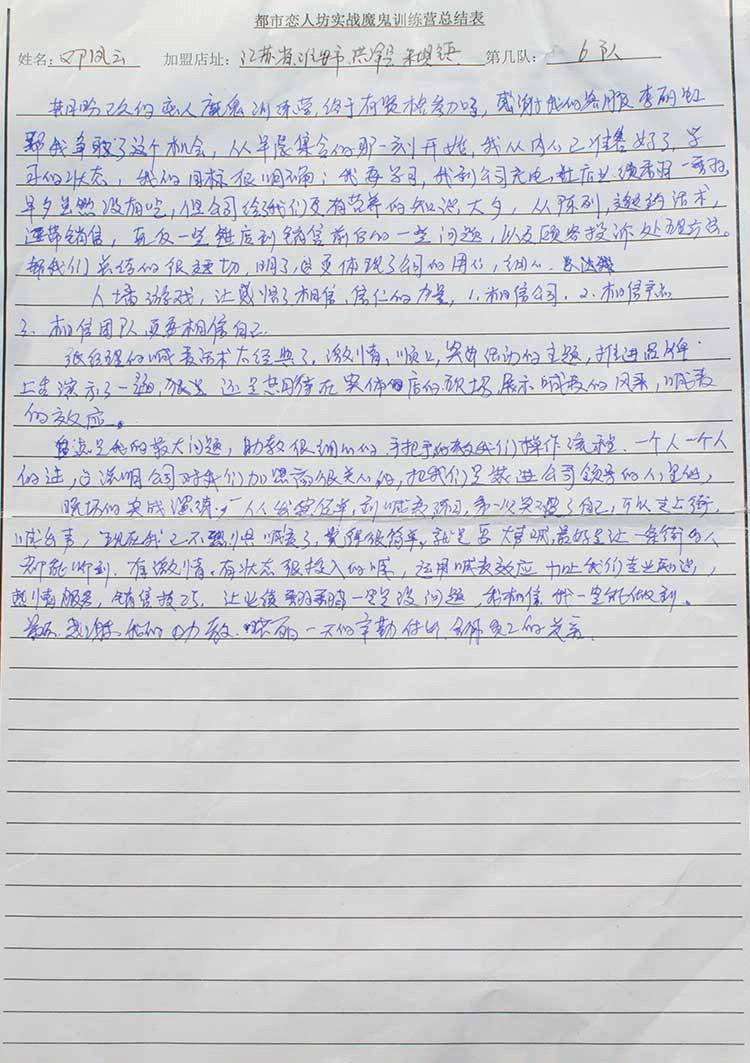 都市恋人坊实战魔鬼训练营总结表
姓名：邓凤云 加盟店址：江苏省淮安市洪泽县 镇 第几队：6队
已久的恋人魔鬼训练营，终于有资格参加啦，感谢我的客服李丽虹
帮我争取了这个机会，从早晨集合的那一刻开始，我从内心已准备好了，学
习的状态，我的目标很明确；我要学习，我到公司充电，让店业绩
早 虽然没有吃，但公司给我们更有营养的知识大 ，从陈列，邀约话术，
连带销售，再 一些 店到销售前后的一些问题，以及顾客投诉处理方法。
帮我们总结的很 切，明了，这更体现了公司的用心，细心。
人墙游戏，让我感悟了相信、信任的力量，1.相信公司．2.相信产品
3.相信团队更要相信自己。
经理的喊麦话术太经典了，激情，顺口，突出活动的主题，推进
上台演示了一遍， 还是 在实体店的现场展示喊麦的风采，喊麦
的效应。
是我的最大问题，助教很细心的，手把手的教我们操作流程．一个人一个人
的过，这说明公司对我们加盟商很关心的，把我们是装进公司领导的心里
晚场的实战演讲， 人人 ，到喊麦练习，第一次突破了自己，可以走上街，
喊出声，现在我已不 喊 了，觉得很简单，就是要大声喊，最好是让一条街的人
都能听到．有激情，有状态很投入的喊，运用喊麦效应，加上我们专业知识，
热情服务，销售技巧，让业绩 一定是没问题，我相信我一定能做到。
最后，感谢 的助教， 一天的辛勤付出，